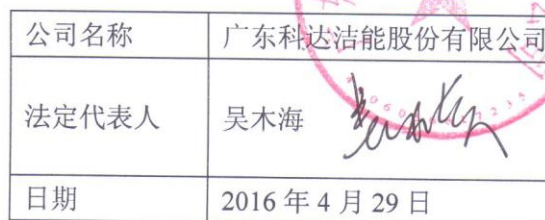 公司名称 广东科达洁能股份有限公司
法定代表人 吴木海
日期 2016 年 4 月 29 日